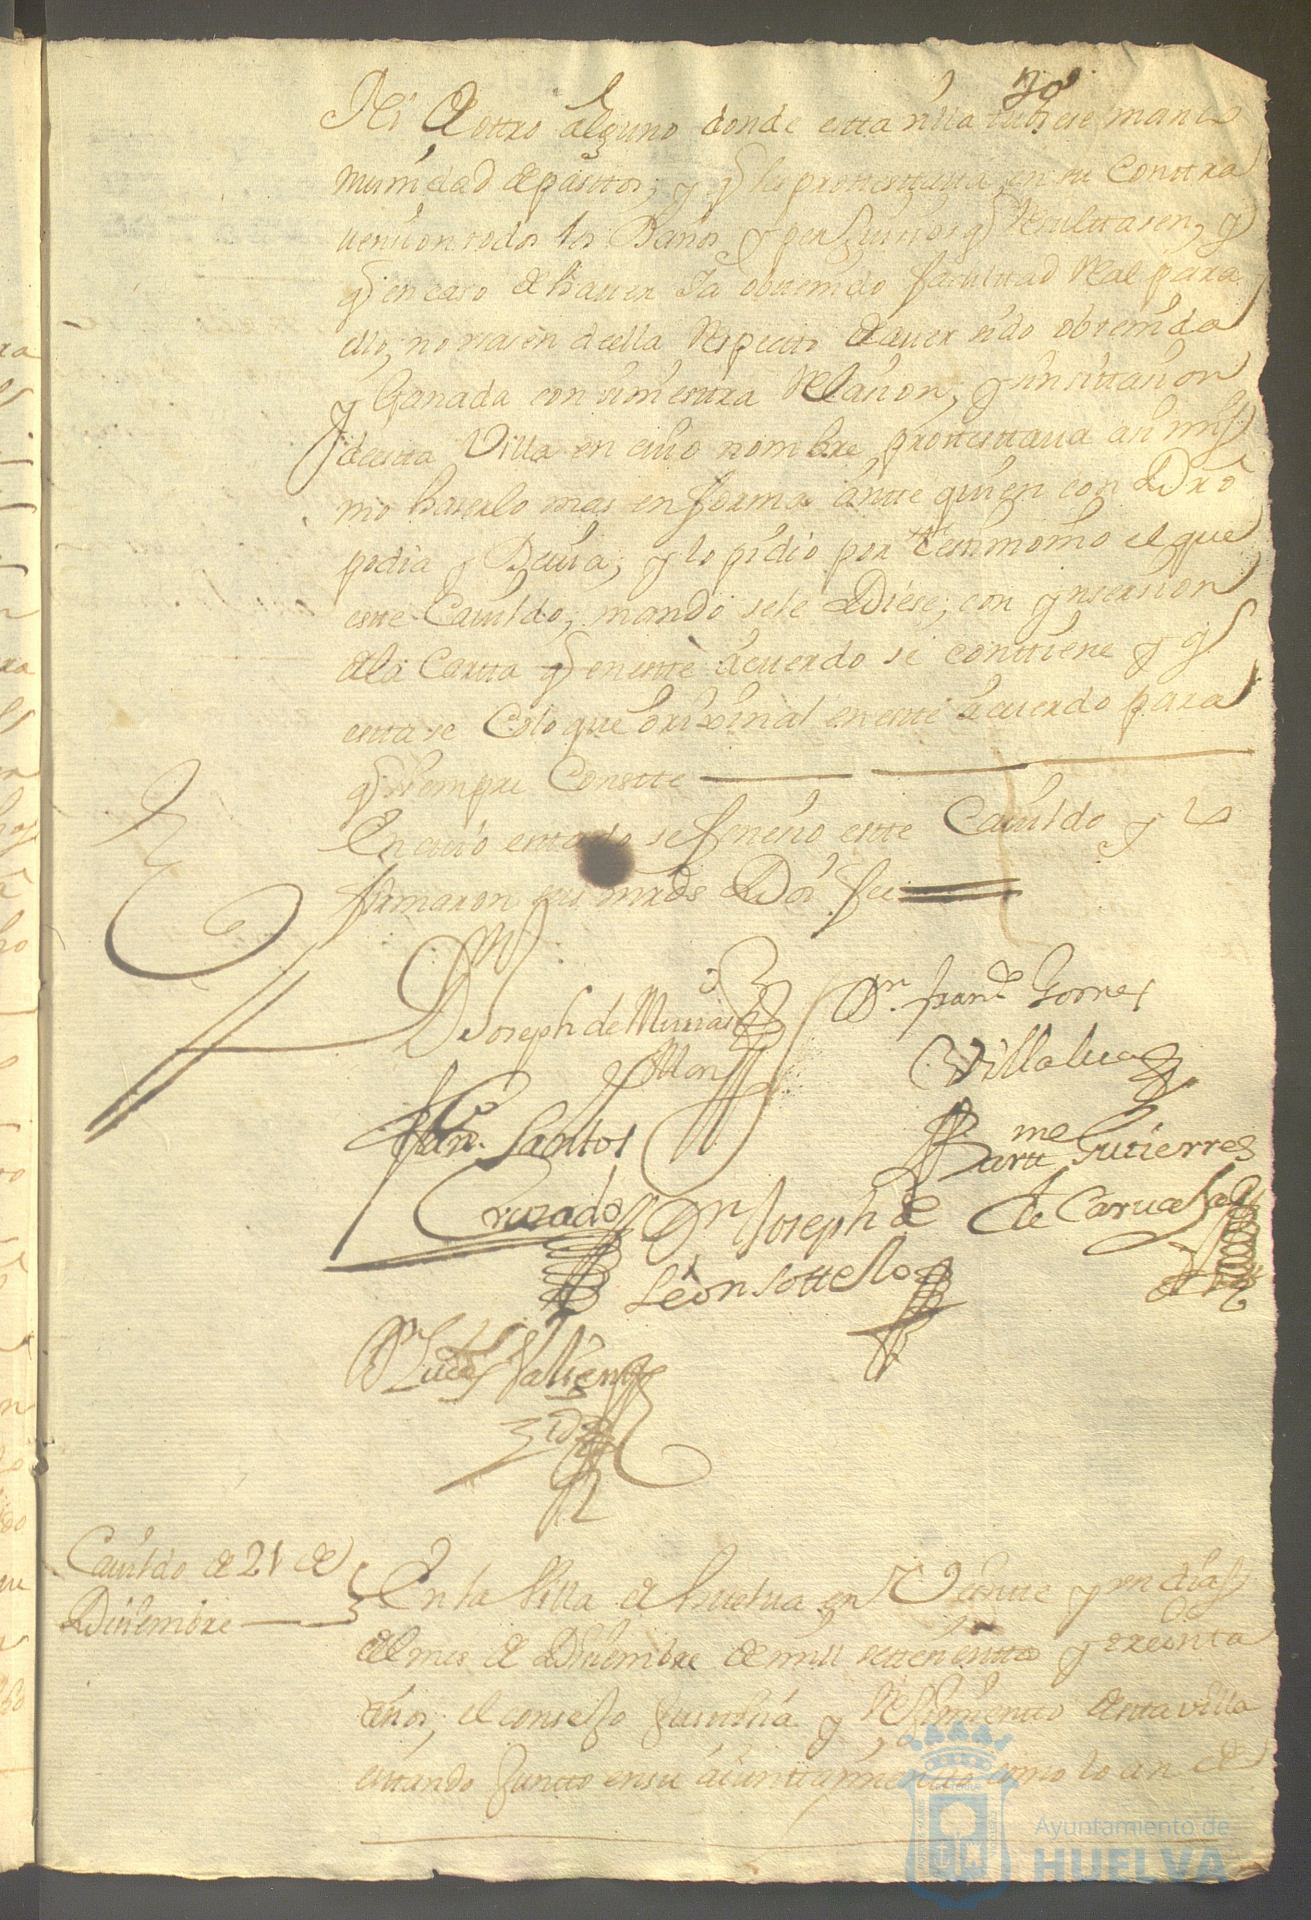 70
Ni de ottro alguno donde estta villa tubiese manco
munidad de pasttos; y q les prottesttaua en su conttra
uension todos los Daños y perjuisios q Resulttasen, y
q en caso de hauer Ya obtenido facultad Real para
ello, no usasen de ella Respecto de auer sido obtenida
y Ganada con siniestra Relasion, y sin sittasion
de estta Villa en cuio nombre prottesttaua asi mis
mo haserlo mas en forma antte quien con dro
podia y Deuia; y lo pidio por testimonio el que
este Cauildo; mando se le Diese; con ynsersion
de la Cartta q en estte acuerdo se conttiene y q
estta se Coloque orixinal en estte acuerdo para
q siempre Constte
En cuio estado se feneсio estte Cauildo y lo
firmaron sus mrds Doi fee
D Joseph de
Dn. franco Gomes
Villalua
Franco. Santos
Cruzado
Bartme Gutierres
de Caruajal
Dn Joseph de
Leon Sottelo
Dn Lucas Valiente
Cauildo de 21 de
Disiembre
En la Villa de huelua en Veinte y un dias
del mes de Disiembre de mill settesienttos y treinta
años; el consejo Justisia y Rejimiento de esta villa
estando Juntto en su aiunttamiento como lo an de
Ayuntamiento de
HUELVA